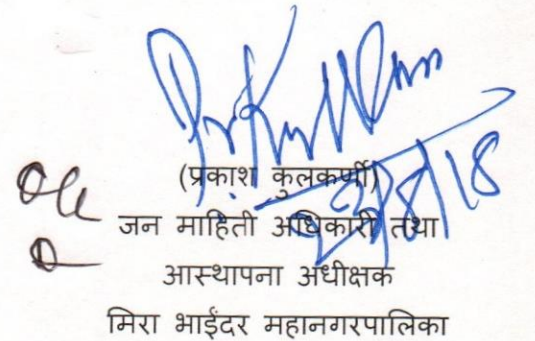 (प्रकाश कुलकर्णी)
जन माहिती अधिकारी तथा
आस्थापना अधीक्षक
मिरा भाईंदर महानगरपालिका